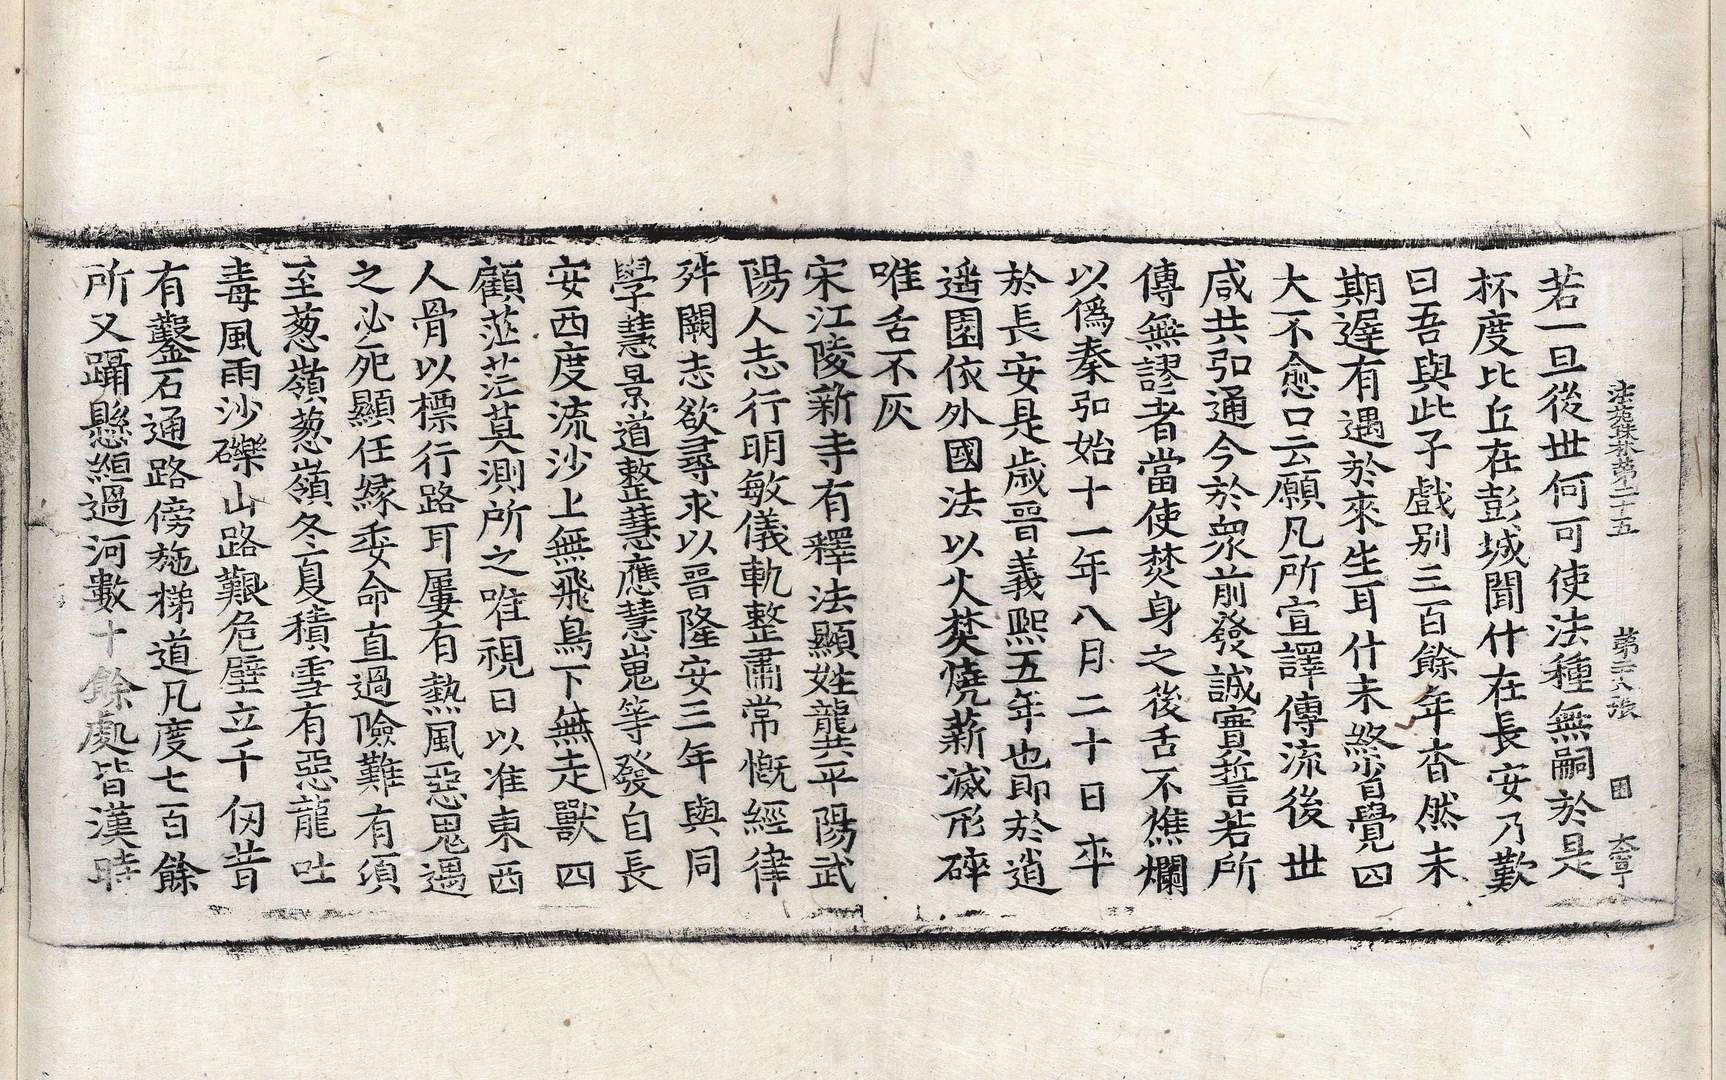 法苑珠林第二十五　第二八張　困　大平丁
若一旦後世何可使法種無嗣於是
杯度比丘在彭城聞什在長安乃歎
曰吾與此子戲别三百餘年杳然未
期遲有遇於來生耳什未終少日覺四
大不愈口云願凡所宣譯傳流後世
咸共弘通今於衆前發誠實誓若所
傳無謬者當使焚身之後舌不燋爛
以僞秦弘始十一年八月二十日卒
於長安是歲晉義熙五年也即於逍
遥園依外國法以火焚燒薪滅形碎
唯舌不灰
宋江陵新寺有釋法顯姓龔平陽武
陽人志行明敏儀軌整肅常慨經律
舛闕志欲尋求以晉隆安三年與同
學慧景道整慧應慧嵬等發自長
安西度流沙上無飛鳥下無走獸四
顧茫茫莫測所之唯視日以准東西
人骨以標行路耳屢有熱風惡鬼遇
之必死顯任緣委命直過險難有頃
至葱嶺葱嶺冬夏積雪有惡龍吐
毒風雨沙礫山路艱危壁立千仞昔
有鑿石通路傍施梯道凡度七百餘
所又躡懸絙過河數十餘處皆漢時